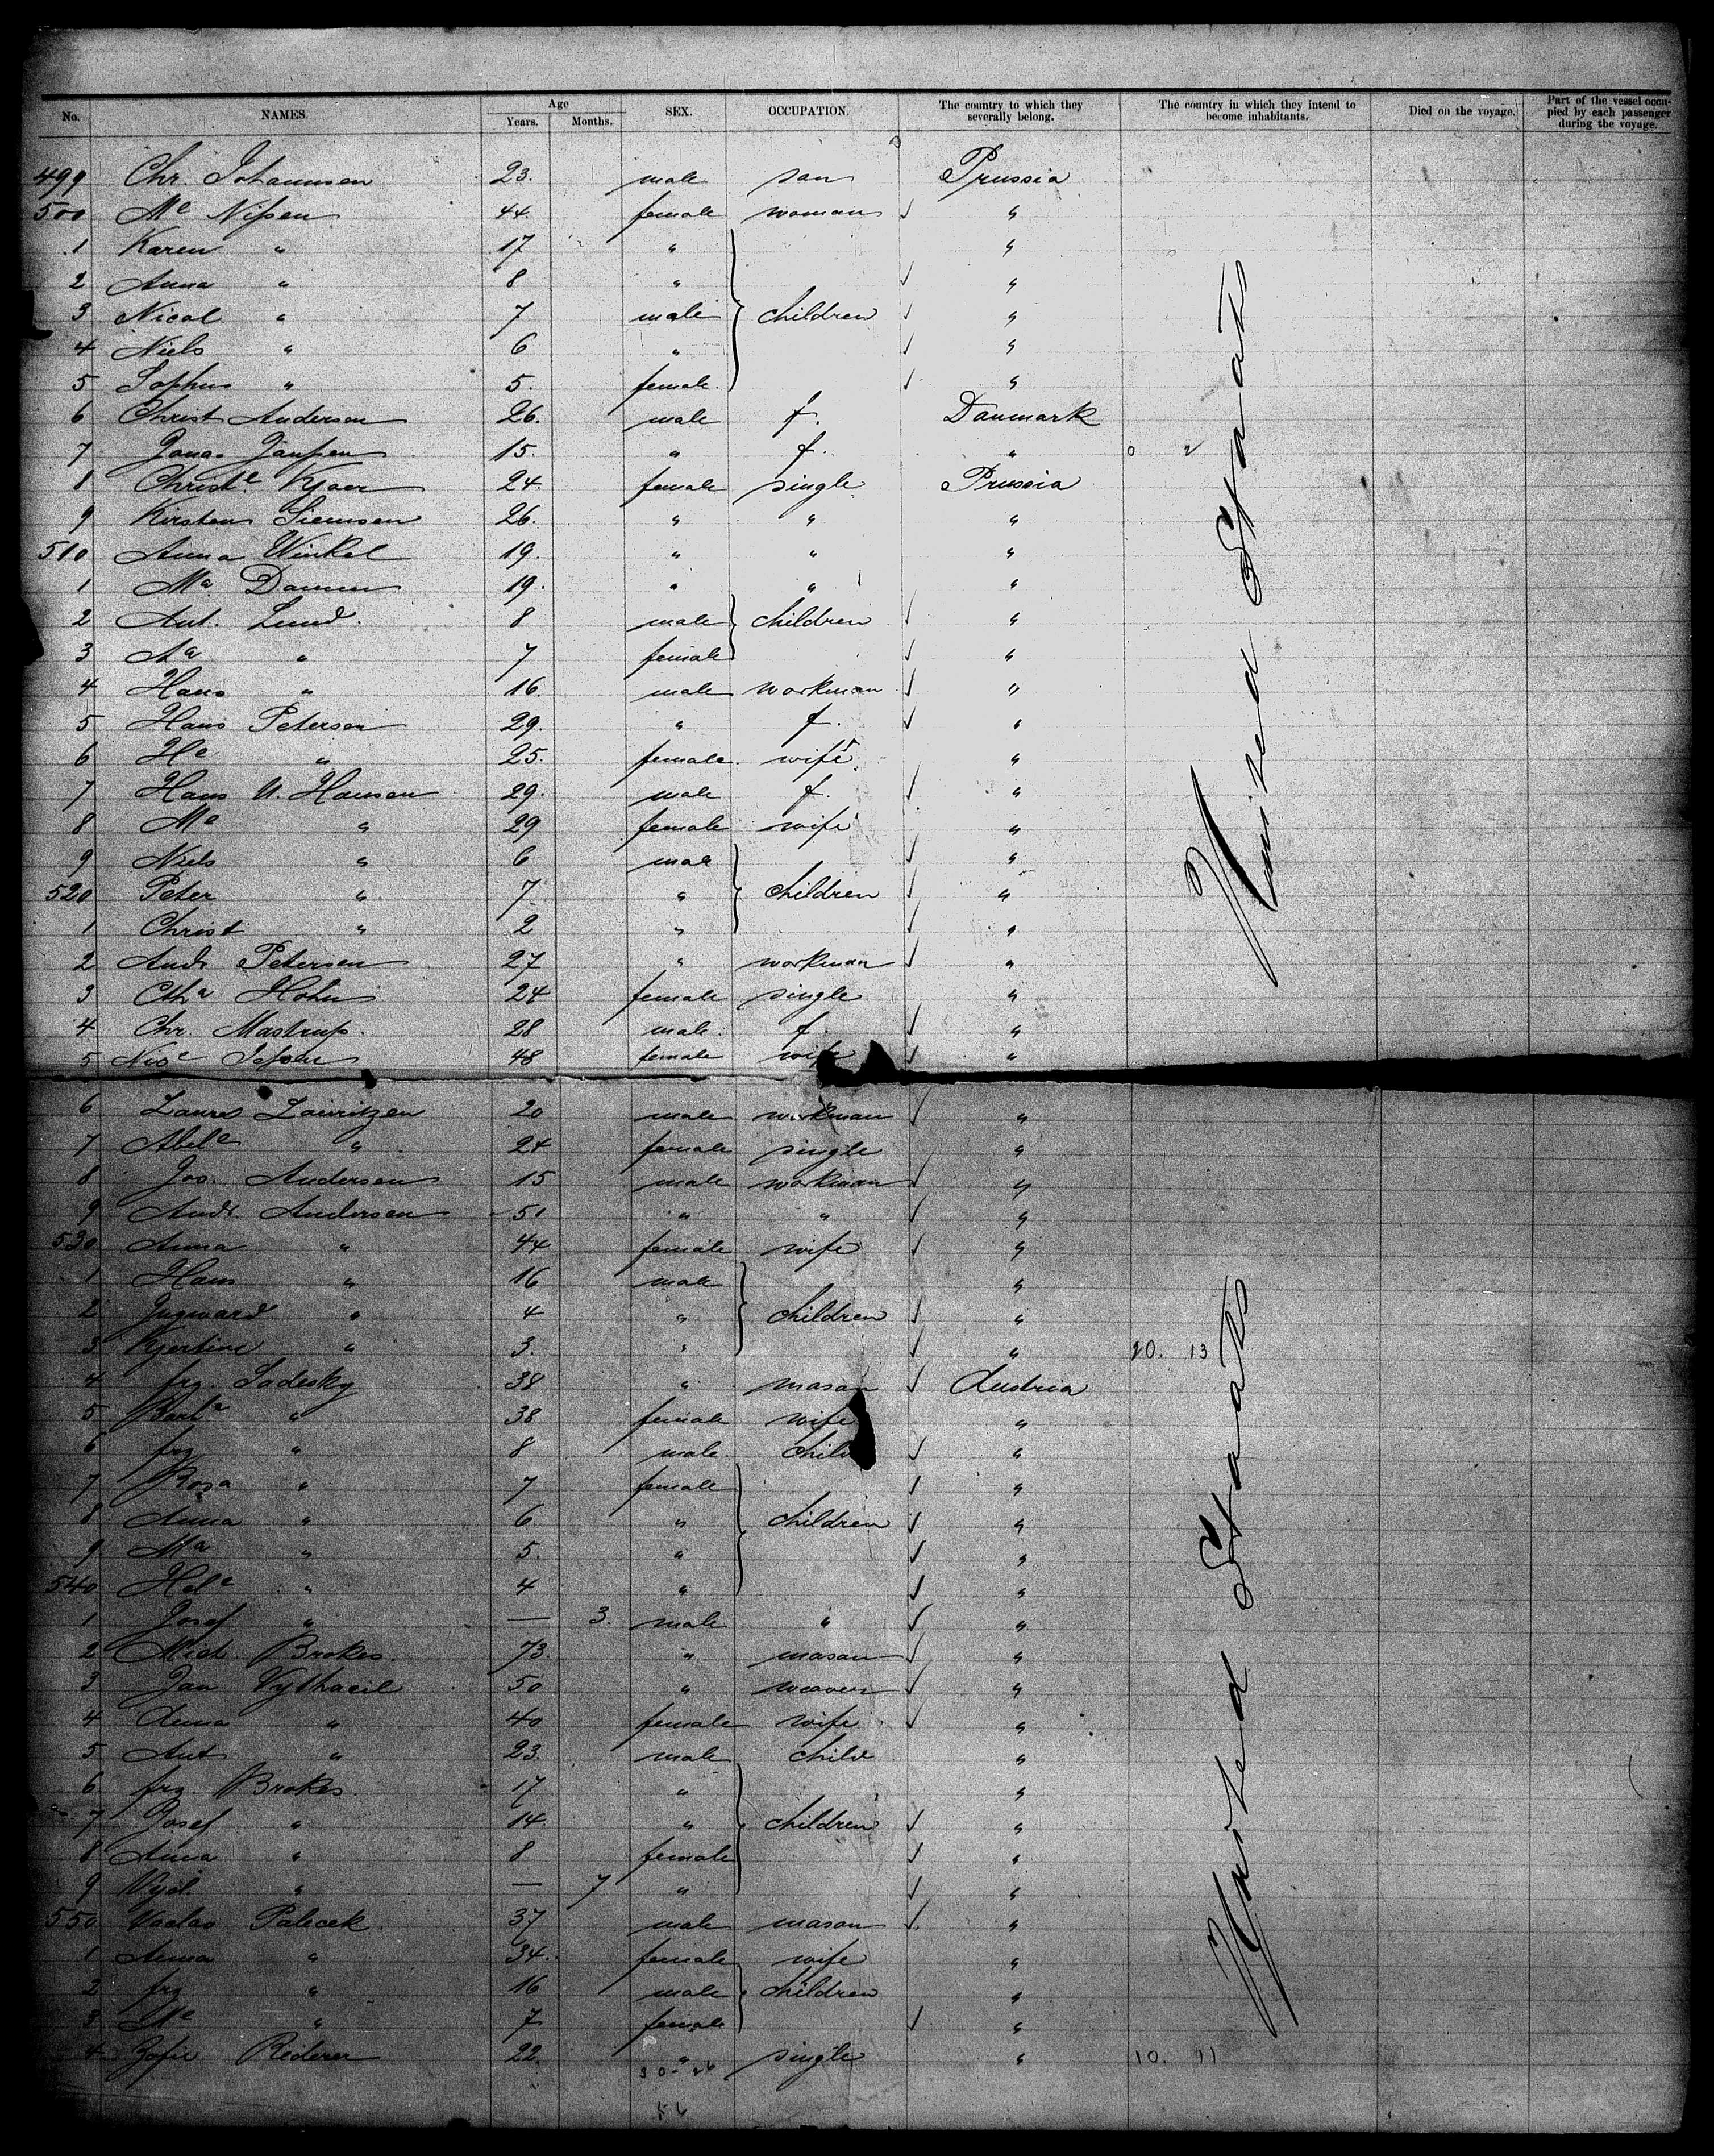 No. NAMES. Age Years. Months. SEX. OCCUPATION. The country to which they severally belong. The country in which they intend to become inhabitants. Died on the voyage. Part of the vessel occupied by each passenger during the voyage.
499 Chr. Johannsen 23. male son Prussia
500 Me Nissen 44. female woman ✓ "
1 Karen " 17 " "
2 Anna " 8 " ✓ "
3 Nicol " 7 male children ✓ "
4 Niels " 6 " ✓ "
5 Sophus " 5. female ✓ "
6 Christ Anderson 26. male f. Danmark
7 Jonas Janssen 15. " f. "
8 Christe Kjaer 24. female single Prussia
9 Kirsten Siemsen 26. " " "
510 Anna Winkel 19. " " "
1 Ma Damm 19. " " "
2 Ant. Lund. 8 male children ✓ "
3 Aa " 7 female ✓ "
4 Hans " 16. male workman ✓ "
5 Hans Peterson 29. " f. ✓ "
6 He " 25. female wife "
7 Hans N. Hansen 29. male f. ✓ "
8 Me " 29 female wife "
9 Niels " 6 male ✓ "
520 Peter " 7 " children ✓ "
1 Christ " 2 " ✓ "
2 Andr Petersen 27 " workman ✓ "
3 Ctha Hohn 24 female single "
4 Chr. Mastrup. 28 male. f. ✓ "
5 Nise Jepsen 48 female wife ✓ "
United States
6 Laures Lauritzen 20 male workman ✓ "
7 Abele " 24 female single "
8 Jos. Andersen 15 male workman ✓ "
9 Andr. Andersen 51 " " ✓ "
530 Anna " 44 female wife ✓ "
1 Hans " 16 male "
2 Ingward " 4 " children ✓ "
3 Kjerstine " 3. " ✓ " 20. 13
4 frz. Sadesky 38 " mason ✓ Austria
5 Barba " 38 female wife "
6 frz " 8 male child ✓ "
7 Rosa " 7 female ✓ "
8 Anna " 6 " children ✓ "
9 Ma " 5. " ✓ "
540 Hele " 4 " ✓ "
1 Josef " — 3. male " ✓ "
2 Mich Brokes. 73. " mason ✓ "
3 Jan Vythacil 50 " weaver ✓ "
4 Anna " 40 female wife ✓ "
5 Ant " 23. male child "
6 frz. Brokes. 17 " "
7 Josef " 14. " children ✓ "
8 Anna " 8 female ✓ "
9 " — 7 " ✓ "
550 Vaclav Palecek 37 male mason ✓ "
1 Anna " 34. female wife "
2 frz " 16 male children "
3 Me " 7 female ✓ "
4 Zofie Rederer 22. " single " 10. 11
United States